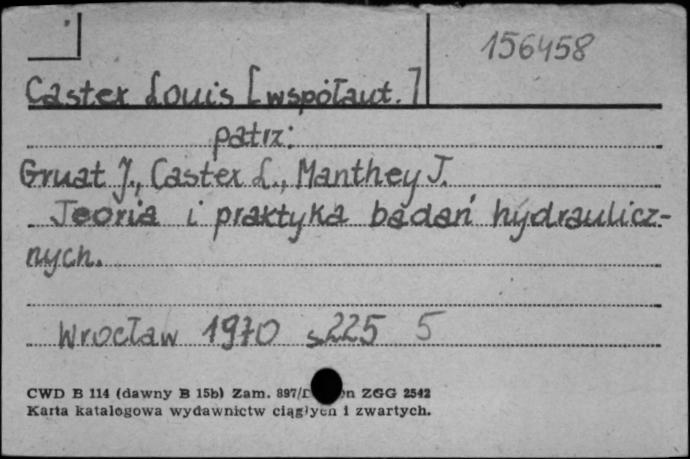 156458
Castex Louis [współaut.]
patrz:
Gruat J., Castex L., Manthey J.
Teoria i praktyka badań hydraulicz-
nych.
Wrocław 1970 s 225 5
CWD B 114 (dawny B 15b) Zam. 897/ ZGG 2542
Karta katalogowa wydawnictw ciągłych i zwartych.